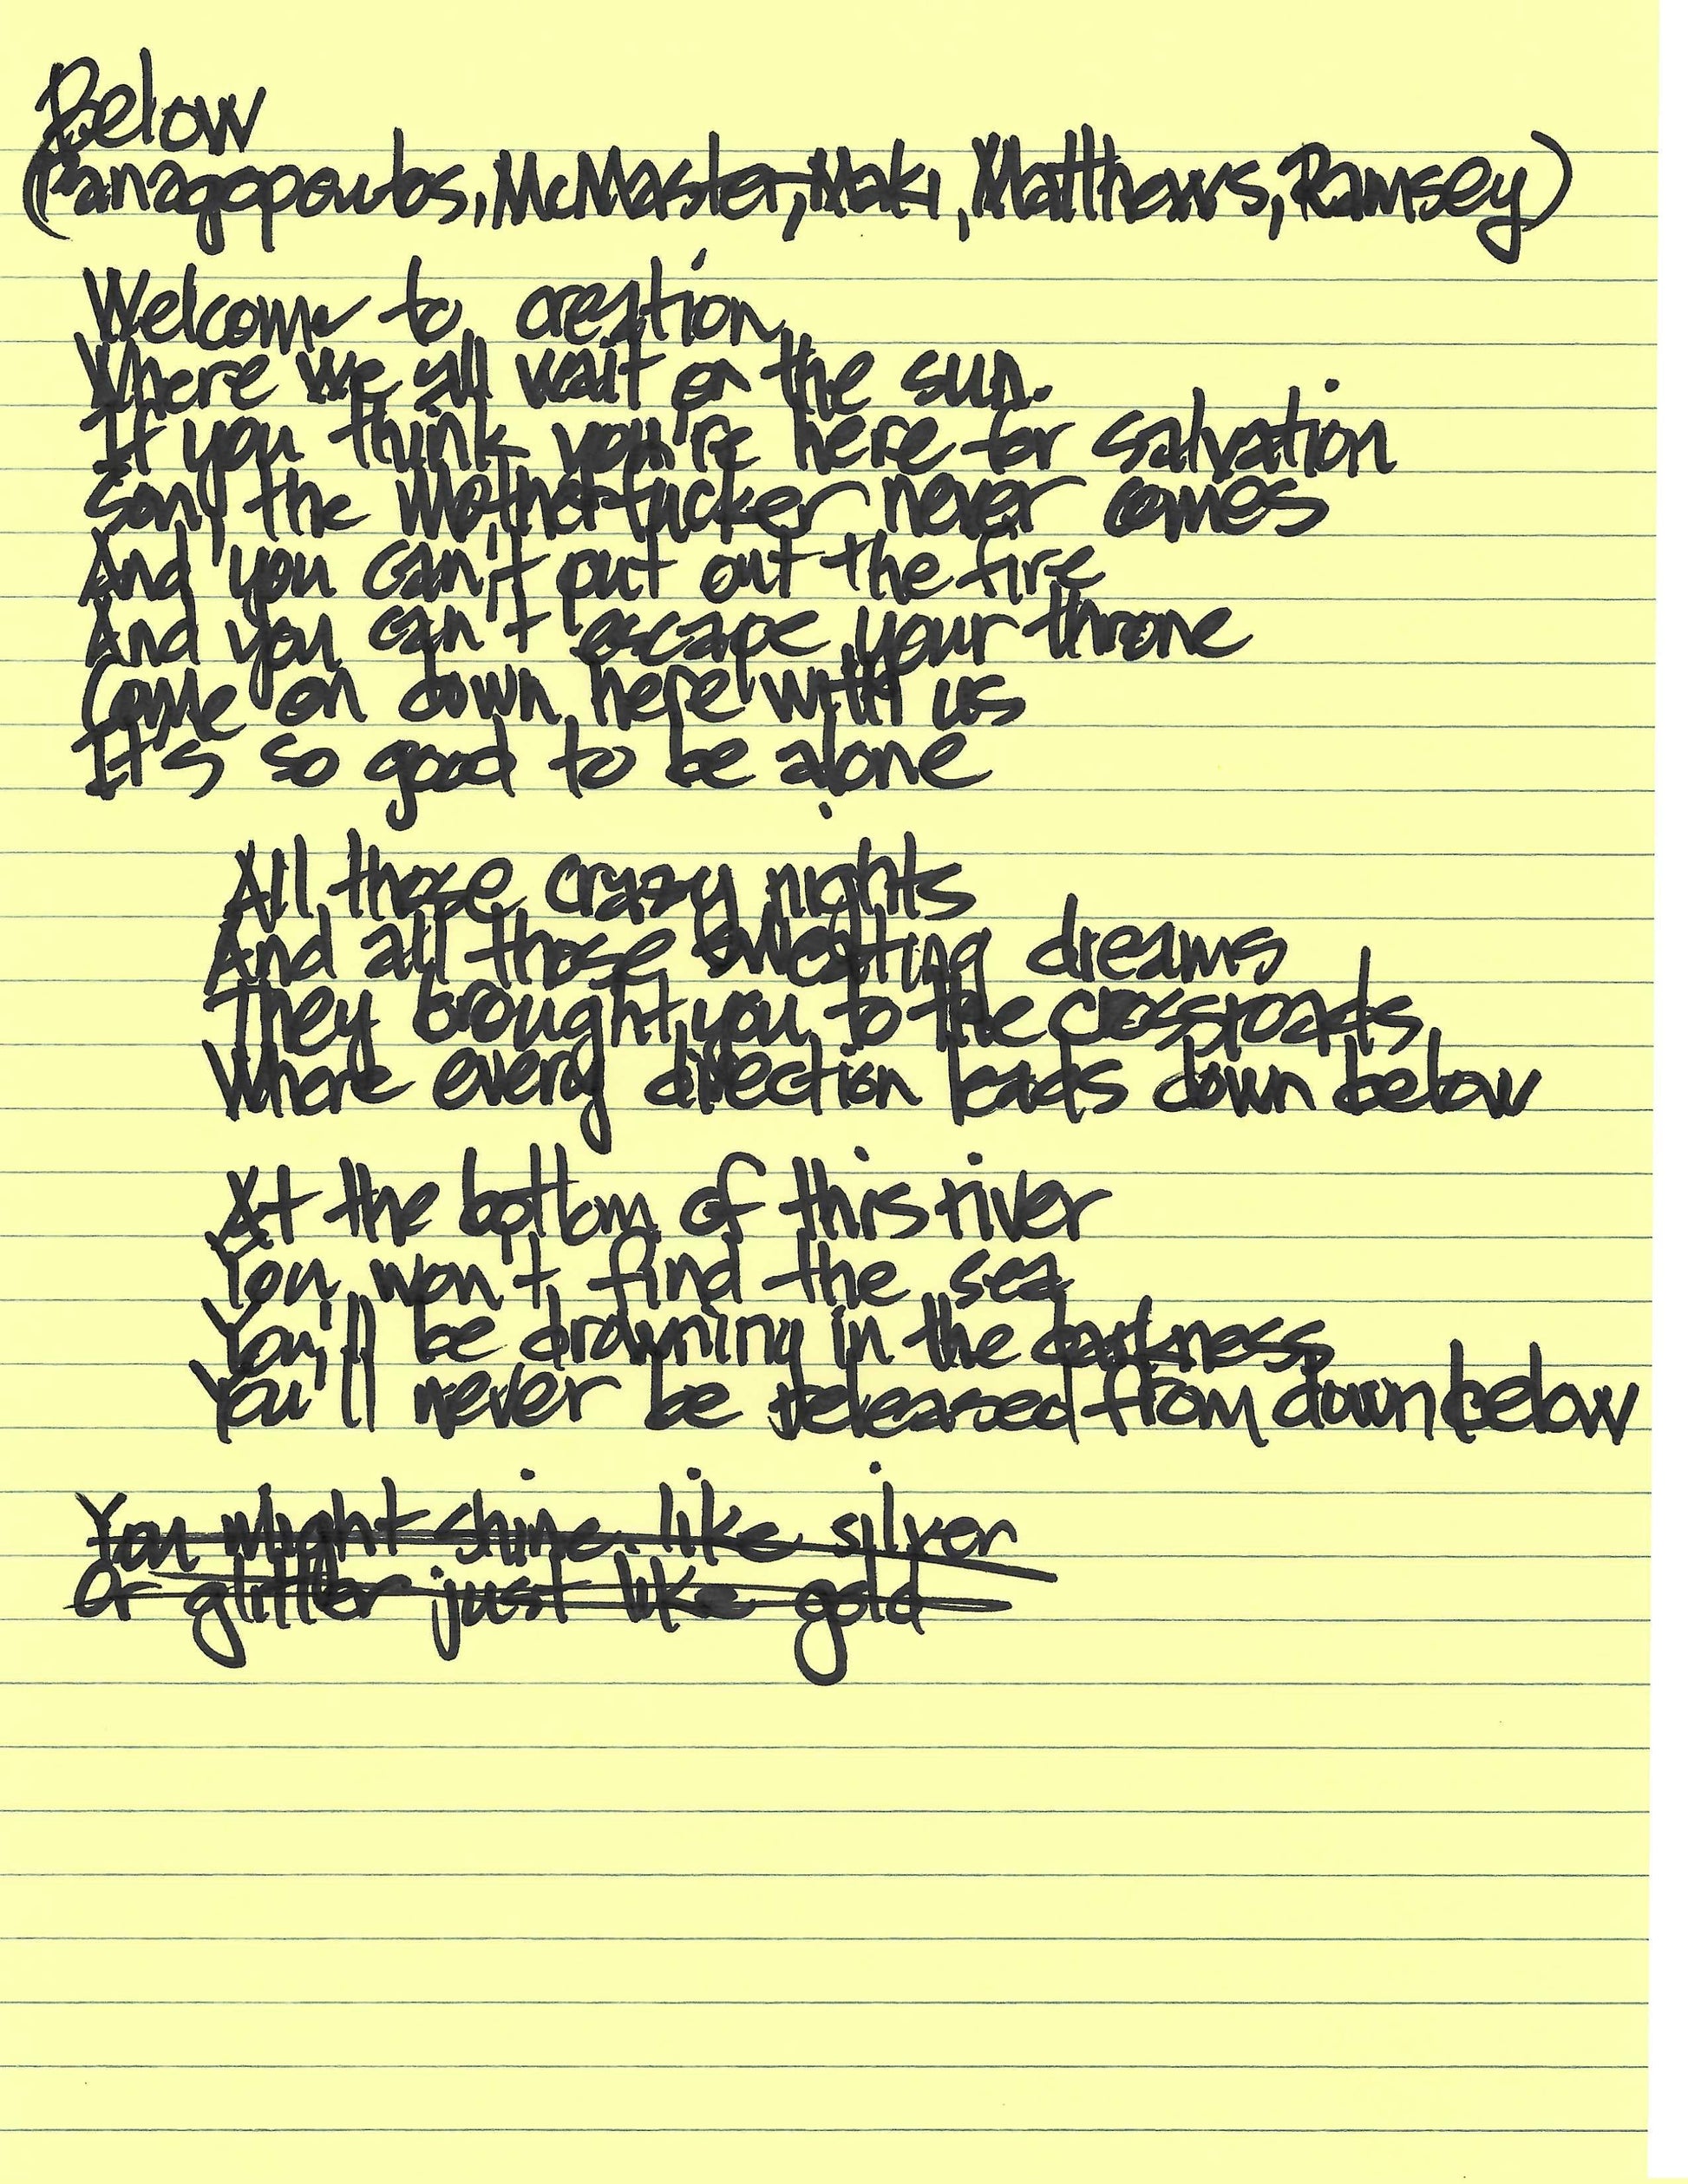 Below
(Panagopoulos, McMaster, Maki, Matthews, Ramsey)
Welcome to creation
Where we all wait on the sun.
If you think you're here for salvation
Son, the Motherfucker never comes
And you can't put out the fire
And you can't escape your throne
Come on down here with us
It's so good to be alone
All those crazy nights
And all those sweating dreams
They brought you to the crossroads
Where every direction leads down below
At the bottom of this river
You won't find the sea
You'll be drowning in the darkness
You'll never be released from down below
You might shine like silver
Or glitter just like gold